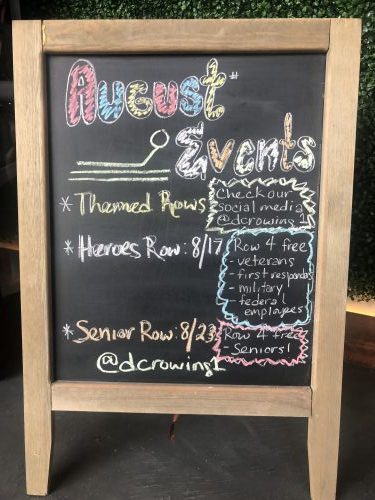 August
Events
* Themed Rows
Check our
social media
@dcrowing1
* Heroes Row: 8/17
Row 4 free
- veterans
- first responders
- military
- federal
employees
* Senior Row: 8/23
Row 4 free
- Seniors!
@dcrowing1